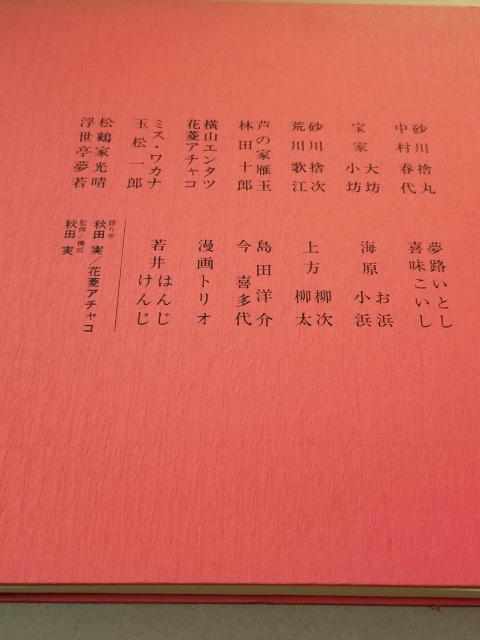 砂川捨丸
中村春代
宝家 大坊
小坊
砂川捨次
荒川歌江
芦の家雁玉
林田十郎
横山エンタツ
花菱アチャコ
ミス・ワカナ
玉松一郎
松鶴家光晴
浮世亭夢若
夢路いとし
喜味こいし
海原 お浜
小浜
上方 柳次
柳太
島田洋介
今喜多代
漫画トリオ
若井 はんじ
けんじ
語り手
秋田 実/花菱アチャコ
監修/構成
秋田 実